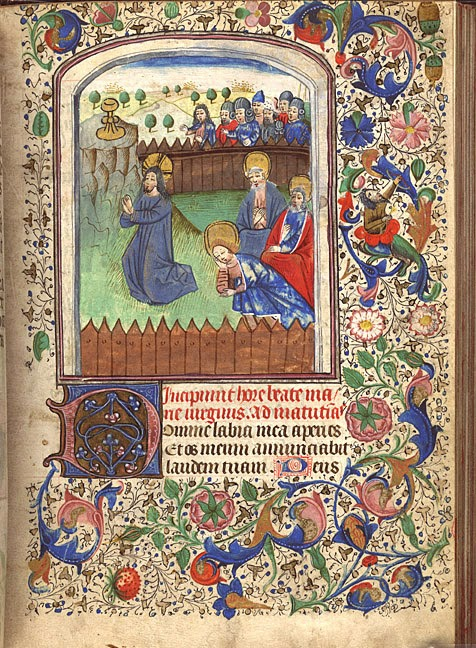 Incipiunt hore beate ma
rie uirginis. Ad matutinas
Domine labia mea aperies
Et os meum annunciabit
laudem tuam. Deus